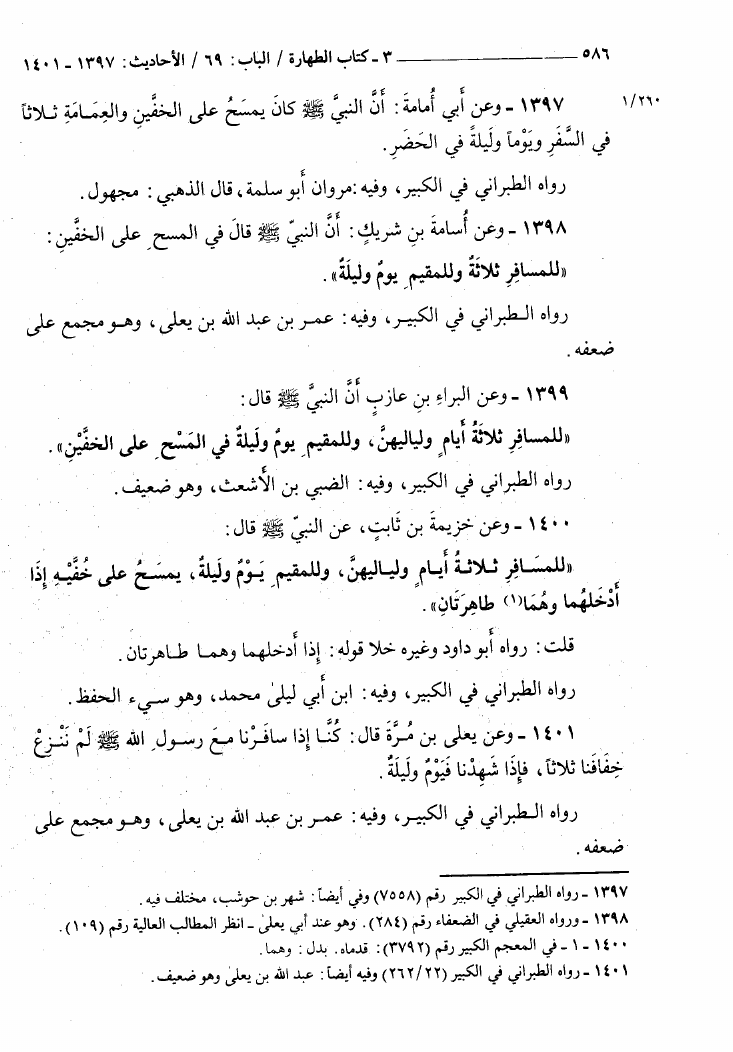 ٥٨٦ ــــــــــــــــــــ ٣ ـ كتاب الطهارة / الباب: ٦٩ / الأحاديث: ١٣٩٧ ـ ١٤٠١
١/٢٦٠ ١٣٩٧ ـ وعن أبي أُمامةَ: أَنَّ النبيَّ ﷺ كانَ يمسَحُ على الخفَّينِ والعِمَامَةِ ثلاثاً
في السَّفَرِ ويَوْماً ولَيلةً في الحَضَرِ.
رواه الطبراني في الكبير، وفيه: مروان أبو سلمة، قال الذهبي: مجهول.
١٣٩٨ ـ وعن أُسامةَ بنِ شريكٍ: أَنَّ النبيّ ﷺ قالَ في المسحِ على الخفَّينِ:
«للمسافرِ ثلاثَةٌ وللمقيمِ يومٌ وليلَةٌ».
رواه الطبراني في الكبير، وفيه: عمر بن عبد الله بن يعلى، وهو مجمع على
ضعفه.
١٣٩٩ ـ وعن البراءِ بنِ عازبٍ أَنَّ النبيَّ ﷺ قال:
«للمسافرِ ثلاثَةُ أَيامٍ ولياليهنَّ، وللمقيمِ يومٌ ولَيلةٌ في المَسْحِ على الخفَّيْنِ».
رواه الطبراني في الكبير، وفيه: الضبي بن الأشعث، وهو ضعيف.
١٤٠٠ ـ وعن خزيمةَ بن ثَابتٍ، عن النبيّ ﷺ قال:
«للمسَافرِ ثلاثةُ أَيامٍ ولياليهنَّ، وللمقيمِ يَوْمٌ ولَيلةٌ، يمسَحُ على خُفَّيْهِ إذَا
أَدْخَلَهُما وهُمَا(١) طاهِرَتَانِ».
قلت: رواه أبو داود وغيره خلا قوله: إذا أدخلهما وهما طاهرتان.
رواه الطبراني في الكبير، وفيه: ابن أبي ليلىٰ محمد، وهو سيء الحفظ.
١٤٠١ ـ وعن يعلى بن مُرَّةَ قال: كُنَّا إذا سافَرْنا معَ رسولِ الله ﷺ لَمْ نَنْزِعْ
خِفَافَنا ثلاثاً، فإذَا شَهِدْنا فَيَوْمٌ ولَيلَةٌ.
رواه الطبراني في الكبير، وفيه: عمر بن عبد الله بن يعلى، وهو مجمع على
ضعفه.
١٣٩٧ ـ رواه الطبراني في الكبير رقم (٧٥٥٨) وفي أيضاً: شهر بن حوشب، مختلف فيه.
١٣٩٨ ـ ورواه العقيلي في الضعفاء رقم (٢٨٤). وهو عند أبي يعلىٰ ـ انظر المطالب العالية رقم (١٠٩).
١٤٠٠ ـ ١ ـ في المعجم الكبير رقم (٣٧٩٢): قدماه. بدل: وهما.
١٤٠١ ـ رواه الطبراني في الكبير (٢٦٢/٢٢) وفيه أيضاً: عبد الله بن يعلىٰ وهو ضعيف.